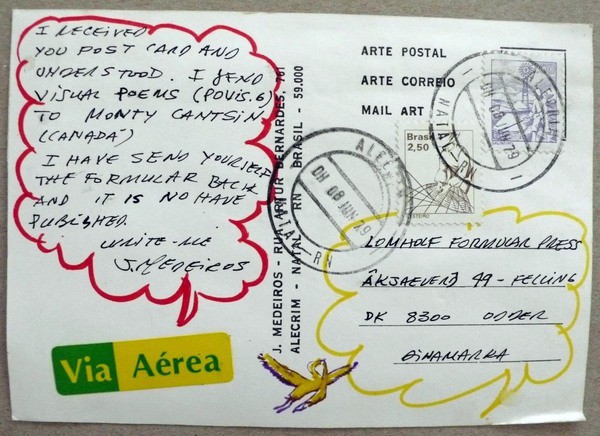 I RECEIVED
YOU POST CARD AND
UNDERSTOOD. I SEND
VISUAL POEMS (POVIS.6)
TO MONTY CANTSIN.
(CANADÁ)
I HAVE SEND YOURSELF
THE FORMULAR BACK
AND IT IS NO HAVE
PUBLISHED.
WRITE-ME
J.MEDEIROS
Via Aérea
J. MEDEIROS - RUA ARTUR BERNARDES, 761
ALECRIM - NATAL - RN - BRASIL - 59.000
ARTE POSTAL
ARTE CORREIO
MAIL ART
Brasil
2,50
ALECRIM
DH 08 JUN 79
NATAL-RN
ALECRIM
DH 08 JUN 79
NATAL-RN
LOMHOLF FORMULAR PRESS
44 - FELLING
DK 8300 ODDER
DINAMARRA